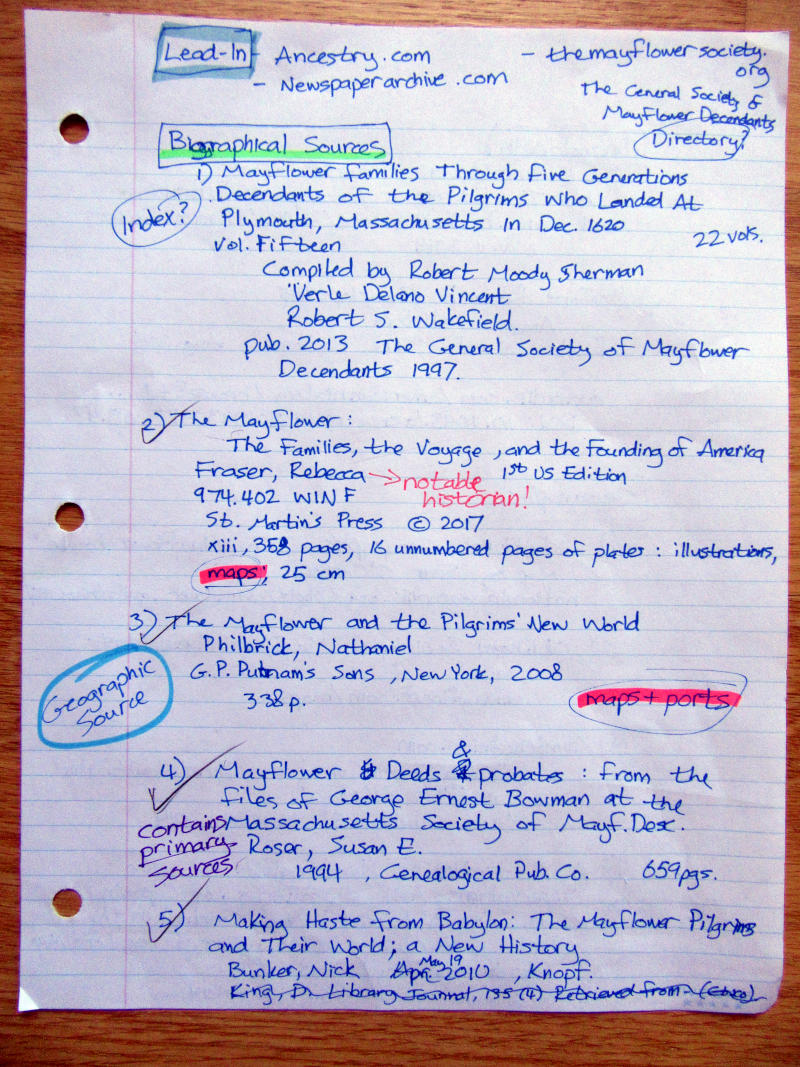 Lead-In - Ancestry.com
- Newspaperarchive.com
- themayflowersociety.
org
The General Society of
Mayflower Decendants
Directory?
Biographical Sources
1) Mayflower families Through Five Generations
Index?
Decendants of the Pilgrims Who Landed At
Plymouth, Massachusetts in Dec. 1620
22 vols.
Vol. Fifteen
Compiled by Robert Moody Sherman
Verle Delano Vincent
Robert S. Wakefield.
pub. 2013 The General Society of Mayflower
Decendants 1997.
2) The Mayflower:
The Families, the Voyage, and the Founding of America
Fraser, Rebecca → notable historian! 1st US Edition
974.402 WIN F
St. Martin's Press © 2017
xiii, 358 pages, 16 unnumbered pages of plates : illustrations,
maps; 25 cm
3) The Mayflower and the Pilgrims' New World
Philbrick, Nathaniel
G.P. Putnam's Sons, New York, 2008
338 p.
maps + ports
Geographic
Source
4) Mayflower Deeds & probates : from the
files of George Ernest Bowman at the
Massachusetts Society of Mayf. Desc.
contains
primary
sources
Roser, Susan E.
1994, Genealogical Pub. Co. 659pgs.
5) Making Haste from Babylon: The Mayflower Pilgrims
and Their World; a New History
Bunker, Nick April May 19 2010, Knopf.
King, D. Library Journal, 135 (4) Retrieved from (Ebsco)